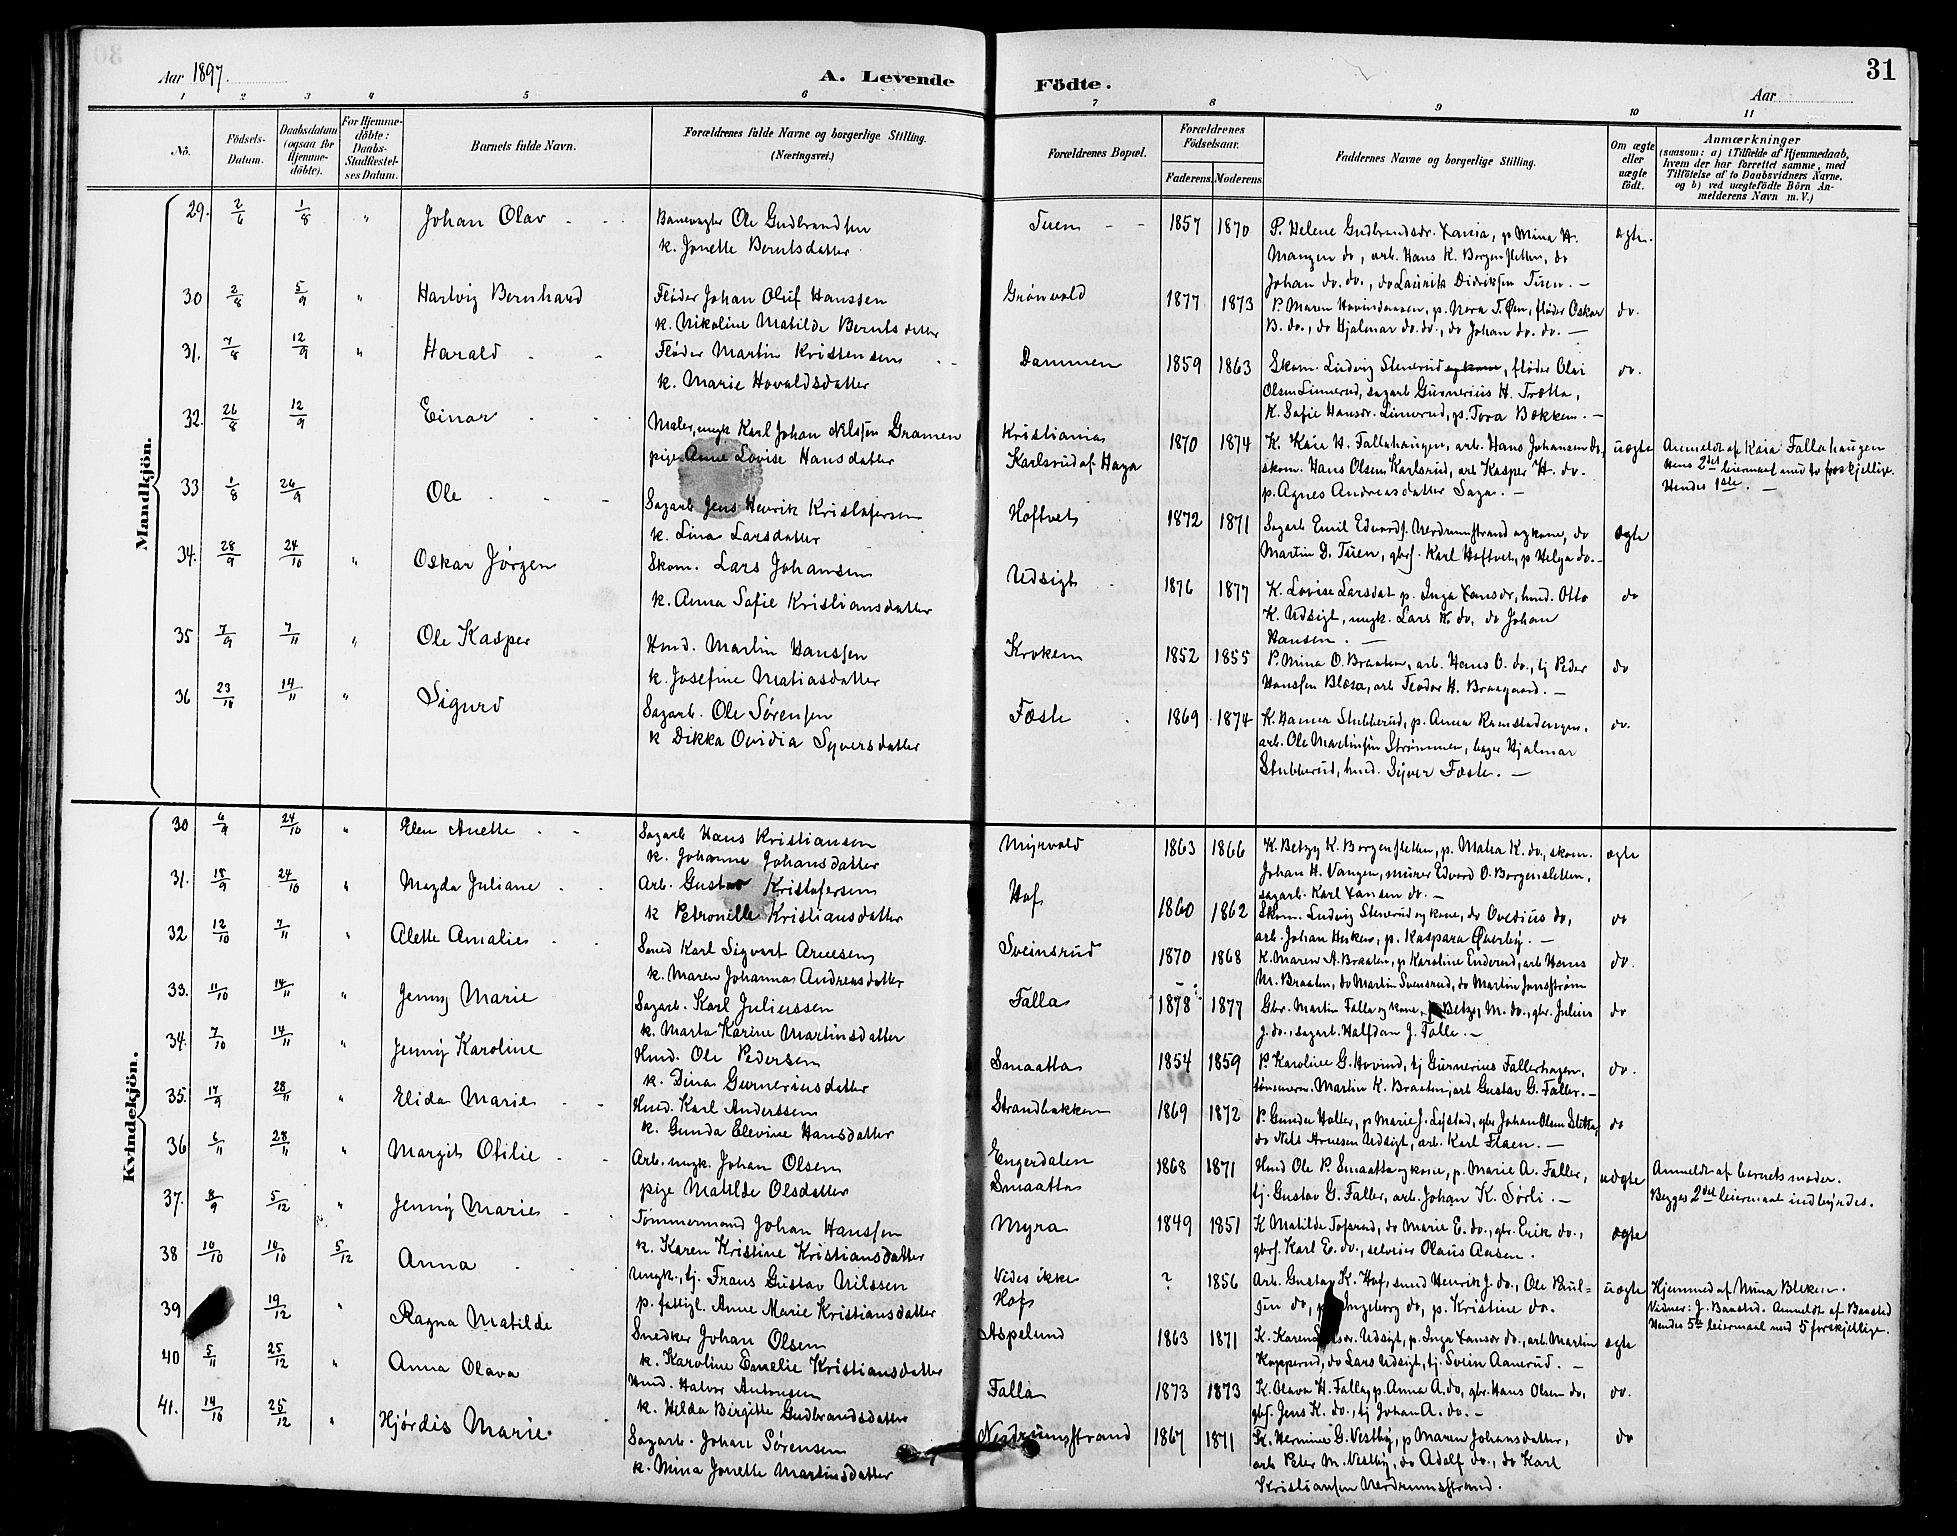 Aar 1897.
A. Levende
Födte.
31
Aar
1 2 3 4 5 6 7 8 9 10 11
Nô.
Födsels-Datum.
Daabsdatum (ogsaa for Hjemme-döbte).
For Hjemme-döbte: Daabs-Stadfæstel-ses Datum.
Barnets fulde Navn.
Forældrenes fulde Navne og borgerlige Stilling. (Næringsvei.)
Forældrenes Bopæl.
Forældrenes Födselsaar.
Faderens. Moderens.
Faddernes Navne og borgerlige Stilling.
Om ægte eller uægte födt.
Anmærkninger
(saasom: a) i Tilfælde af Hjemmedaab,
hvem der har forrettet samme, med
Tilföielse af to Daabsvidners Navne,
og b) ved uægtefödte Börn An-
melderens Navn m. V.)
Mandkjön.
29. 2/6 1/8 " Johan Olav
Banevogter Ole Gudbrandsen
k. Jonette Berntsdatter
Tuen 1857 1870
P. Helene Gudbrandsdr. Xania, p Mina H.
Mangen do, arb. Hans K. Borgensletten, do
Johan do. do., do Laurits Didriksen Tuen.
ægte.
30 2/8 5/9 " Hartvig Bernhard
Fløder Johan Oluf Hanssen
k. Nikoline Matilde Berntsdatter
Grönvold 1877 1873
P. Maren Hovindaasen, p. Nora T. Øen, fløder Oskar
B. do., do Hjalmar do. do., do Johan do. do.
do.
31. 7/8 12/9 " Harald
Fløder Martin Kristensen
k. Marie Hovaldsdatter
Dammen 1859 1863
Skom. Ludvig Stenerud og kone, fløder Olai
Olsen Linnerud, sagarb Gunnerius H. Trætta,
K. Sofie Hansdr. Linnerud, p. Tora Bekken.
do.
32. 26/8 12/9 Einar
Maler, ungk Karl Johan Nilssen Gramen
pige Anne Lovise Hansdatter
Kristiania
Karlsrud af Haga
1870 1874
K. Kaia H. Fallahaugen, arb. Hans Johansen do,
skom. Hans Olsen Karlsrud, arb Kasper H. do.
p. Agnes Andreasdatter Saga.
uægte
Anmeldt af Kaia Fallahaugen
Hans 2det leiermaal med to forskjellige.
Hendes 1ste.
33 1/8 26/9 Ole
Sagarb Jens Henrik Kristofersen
k. Lina Larsdatter
Hoftvet 1872 1871
Sagarb Emil Edvards. Nerdrumstrand og kone, do
Martin D. Tuen, gbrs. Karl Hoftvet, p Helga do.
Ægte
34. 28/9 24/10 " Oskar Jørgen
Skom. Lars Johansen
k. Anna Sofie Kristiansdatter
Udsigt 1876 1877
K. Lovise Larsdat p. Inga Xansdr, hmd. Otto
K. Udsigt, ungk. Lars K. do, do Johan
Hansen.
do
35 7/9 7/11 " Ole Kasper
Hmd. Martin Hanssen
k. Josefine Matiasdatter
Kroken 1852 1855
P. Mina O. Braaten, arb. Hans O. do., tj Peder
Hanssen Blæsa, arb Teodor H. Braagaard.
do
36 23/10 14/11 " Sigurd
Sagarb. Ole Sørensen
k Dikka Ovidia Syversdatter
Fæste 1869 1874
K. Hanna Stubberud, p. Anna Ramstadengen,
arb. Ole Martinsen Strømmen, bager Hjalmar
Stubberud, hmd. Syver Fæste.
do.
Kvindekjön.
30 6/9 24/10 " Elen Anette
Sagarb Hans Kristiansen
k. Johanne Johansdatter
Myrvold 1863 1866
K. Betzy K. Borgensletten, p. Matea K. do, skom.
Johan H. Vangen, murer Edvard O. Borgensletten,
sagarb. Karl Xansen do.
ægte
31. 18/9 24/10 " Magda Juliane
Arb. Gustav Kristofersen
k Petronille Kristiansdatter
Hof 1860 1862
Skom. Ludvig Stenerud og kone, do Ovedius do,
arb. Johan Hesken, p. Kaspara Øverby.
do
32 12/10 7/11 " Alette Amalie
Smed Karl Sigvart Arnesen
k. Maren Johanna Andreasdatter
Sveinsrud 1870 1868
K. Maren A. Braaten, p Karoline Enderud, arb Hans
M. Braaten, do Martin Svensrud, do Martin Jonsstrøm
do.
33. 11/10 14/11 " Jenny Marie
Sagarb. Karl Juliussen
k. Marta Karine Martinsdatter
Falla 1878 1877
Gbr. Martin Falla og kone, p Betzy M. do, gbr. Julius
J. do., sagarb. Halfdan J. Falle.
do
34. 7/10 14/11 " Jenny Karoline
Hmd. Ole Pedersen
k. Dina Gunneriusdatter
Smaatta 1854 1859
P. Karoline G. Hovind, tj Gunnerius Fallerhagen,
tønnemm. Martin K. Braaten, arb Gustav G. Faller.
do.
35. 17/9 28/11 " Elida Marie
Hmd. Karl Anderssen
k. Gunda Elevine Hansdatter
Strandbakken 1869 1872
P. Gunda Holler, p Marie J. Sejstad, gbr Johan Olsen Sletta,
do Nils Arnesen Udsigt, arb. Karl Flaen.
do
36 6/11 28/11 " Margit Otilie
Arb. ungk. Johan Olsen
pige Matilde Olsdatter
Engerdalen
Smaatta
1868 1871
Hmd Ole P. Smaatta og kone, p. Marie A. Faller,
tj. Gustav G. Faller, arb. Johan K. Sørli.
uægte
Anmeldt af barnets moder.
Begges 2det leiermaal indbyrdes.
37. 8/9 5/12 " Jenny Marie
Tømmermand Johan Hanssen
k. Karen Kristine Kristiansdatter
Myra 1849 1851
K Matilde Tofsrud, do Marie E. do., gbr. Erik do.,
gbrs. Karl E. do., selveier Olaus Aasen.
ægte
38 10/10 10/10 5/12 Anna
Ungk., tj. Frans Gustav Nilssen
p. fattigl. Anne Marie Kristiansdatter
Vides ikke
Hof
? 1856
Arb. Gustav K. Hof, smed Henrik J. do., Ole Paul-
sen do, p. Ingeborg do, p. Kristine do.
uægte
Hjemmed af Mina Bleken.
Vidner: J. Baastad. Anmeldt af Baastad
Hendes 5te leiermaal med 5 forskjellige.
39 19/12 " Ragna Matilde
Snedker Johan Olsen
k. Karoline Emelie Kristiansdatter
Aspelund 1863 1871
K. Karen Udsigt, p. Inga Xansdr do., arb. Martin
Kopperud, do Lars Udsigt, tj. Svein Aanerud.
ægte
40 5/11 25/12 " Anna Olava
Hmd. Halvor Antonsen
k. Hilda Birgitte Gudbrandsdatter
Falla 1873 1873
K. Olava H. Falla, p. Anna A. do, gbr. Hans Olsen do,
gbrs. Jens K. do., tj Johan A. do.
do.
41. 14/10 25/12 " Hjørdis Marie.
Sagarb. Johan Sørensen
k. Mina Jonette Martinsdatter
Nerdrumsstrand 1867 1871
K. Hermine G. Vestby, p Maren Johansdatter,
arb Peter M. Vestby, do Adolf do., do Karl
Kristiansen Nerdrumsstrand.
do